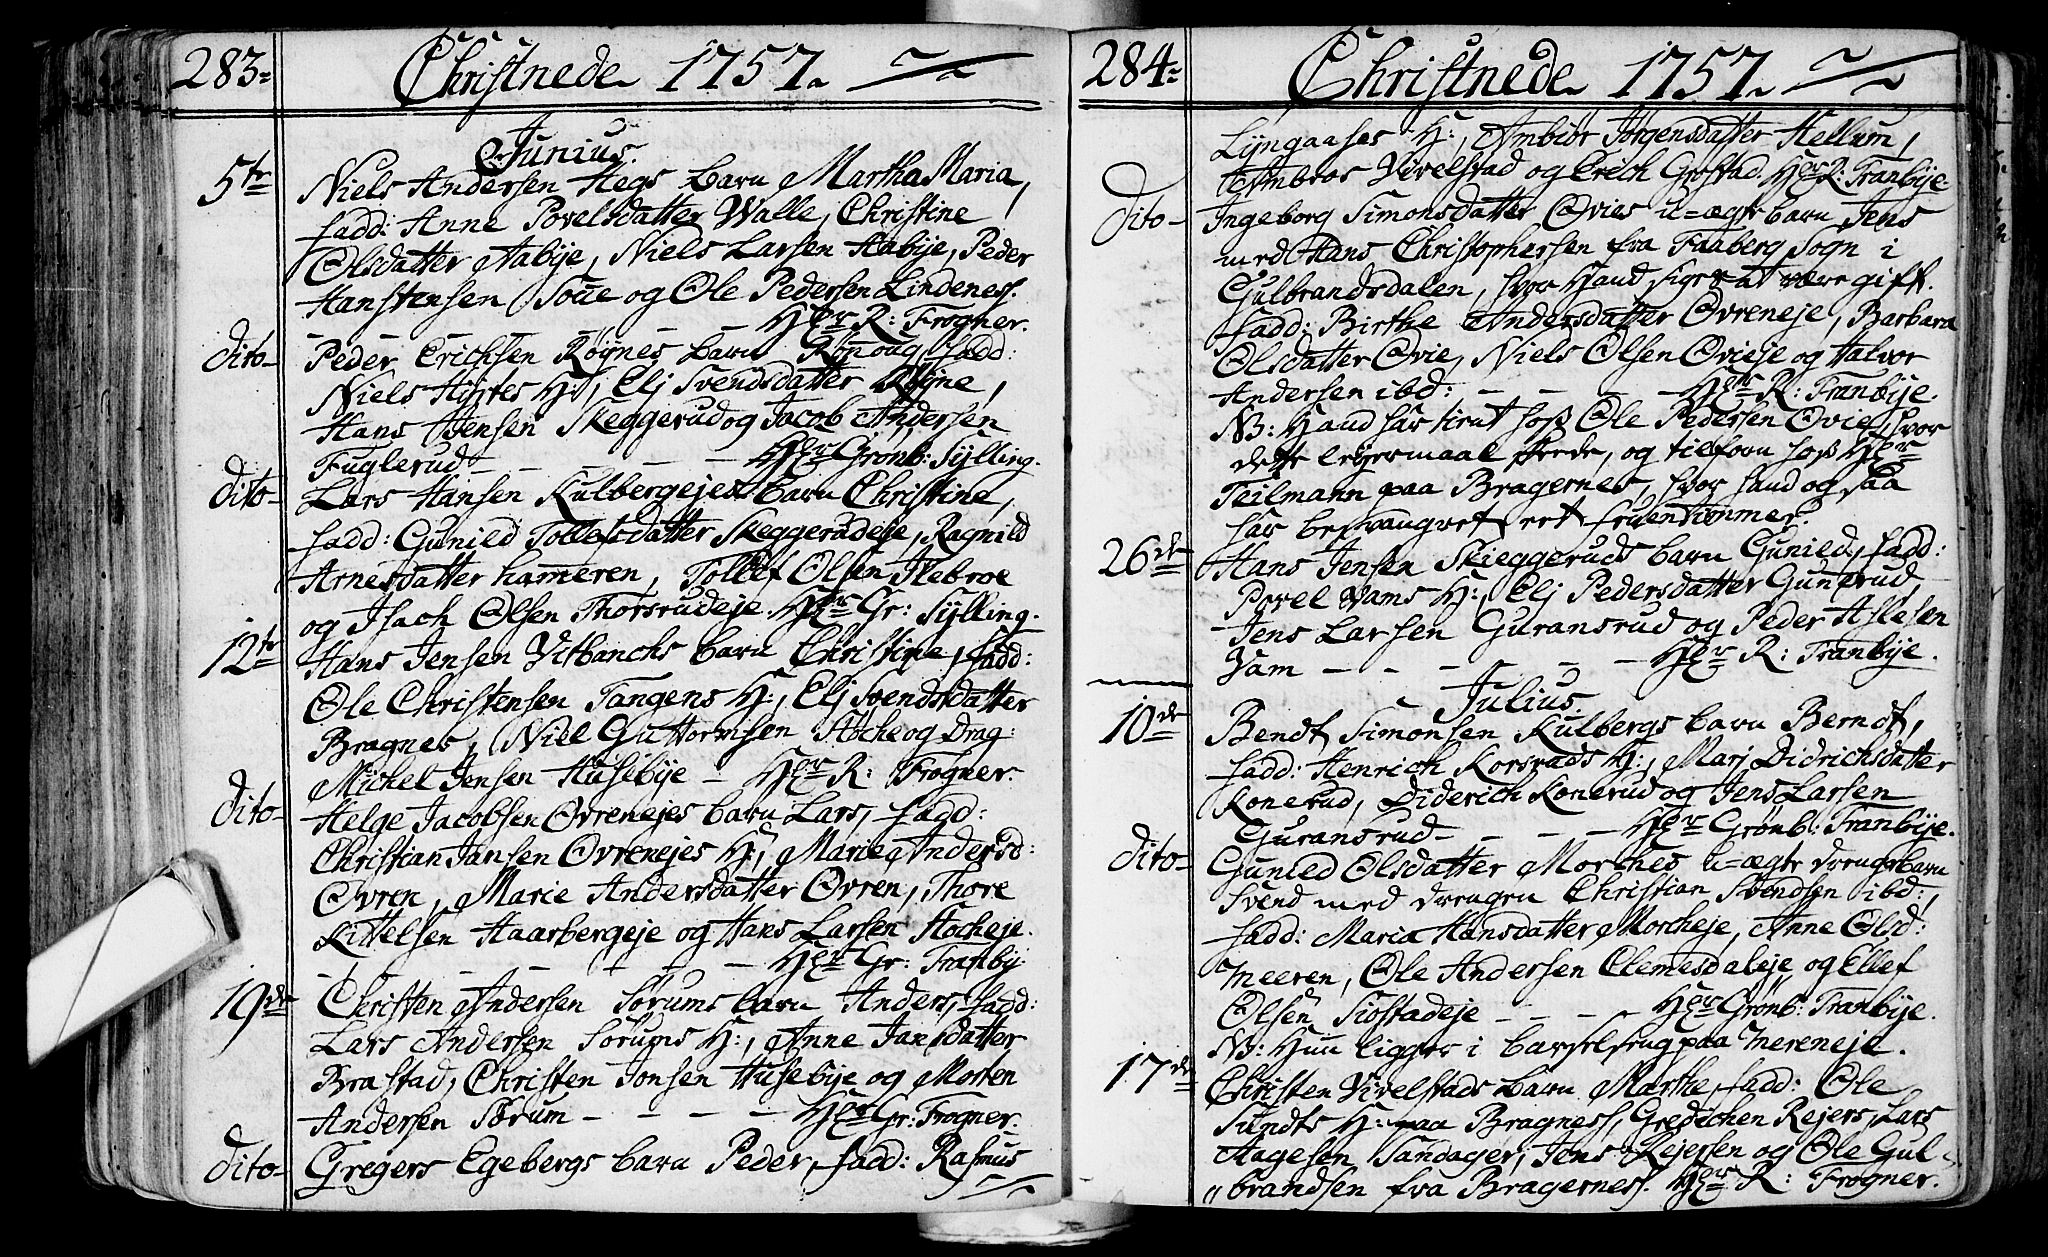 283.
Christnede 1757.
Junius.
5te Niels Andersen Hegs barn Martha Maria,
fadd: Anne Povelsdatter Walle, Christine
Olsdatter Aabije, Niels Larsen Aabije, Peder
Hanstensen Toue og Ole Pedersen Lindeness.
Hr R: Frogner.
dito Peder Erichsen Røÿnes barn Rønoug, fadd:
Niels H: Elj Svendsdatter
Hans Jensen Skeggerud og Jacob Andersen
Fuglerud - - - - Hr Grønb: Sylling.
dito Lars Hansen Kulbergejes barn Christine,
fadd: Gunild Tollefsdatter Skeggerudeje, Ragnild
Arnesdatter hameren, Tollef Olsen Ilebroe
og Isach Olsen Thorsrudeje. Hr Gr: Sylling.
12te Hans Jensen Vitbanchs barn Christine, fadd:
Ole Christensen Tangens H:, Elj Svendsdatter
Bragnes, Niel Guttormsen Hoche og Drag:
Michel Jensen Husebije - Hr R: Frogner.
dito Helge Jacobsen Øvrenejes barn Lars, fadd:
Christian Jansen Øvrenejes H:, Marie Andersd:
Øvren, Marie Andersdatter Øvren, Thore
Kittelsen Haarbergeje og Hans Larsen Hocheje.
- - - - - - Hr Gr: Tranby.
19de Christen Andersen Sørums barn Anders, fadd:
Lars Andersen Sørums H:, Anne Jansdatter
Brastad, Christen Jonsen Husebije og Morten
Andersen Sørum - - - - Hr Gr: Frogner.
dito Gregers Egebergs barn Peder, fadd: Rasmus
284.
Christnede 1757.
Lyngaases H:, Ambiør Jørgensdatter Hellum,
Ambros Vivelstad og Erich Grøstad. Hr R: Tranbije.
dito Ingeborg Simonsdatter Ovies u=ægte barn Jens
med Hans Christophersen fra Faaberg Sogn i
Gulbrandsdalen, hvor hand siges at være gift.
fadd: Birthe Andersdatter Øvreneje, Barbara
Olsdatter Ovie, Niels Olsen Ovieje og Halvor
Andersen ibd: - - - - Hr R: Tranbije.
NB: Hand har tient hoss Ole Pedersen Ovie, hvor
dette lejermaal skeede, og tilforn hoss Hr
Teilmann paa Bragernes, hvor hand og saa
har besvangret eet fruentimmer.
26de Hans Jensen Skieggeruds barn Gunild, fadd:
Povel Vams H:, Elj Pedersdatter Guntrud
Jens Larsen Guransrud og Peder Aslesen
Vam - - - - - Hr R: Tranbije.
Julius.
10de Bendt Simonsen Kulbergs barn Berndt,
fadd: Henrich Korsrads H:, Marj Didrichsdatter
Konerud, Diderich Konerud og Jens Larsen
Guransrud - - - - Hr Grønb: Tranbije.
dito Gunild Olsdatter Morches u=ægte drengebarn
Svend med drengen Christian Svendsen ibd:,
fadd: Maria Hansdatter Morcheje, Anne Olsd:
Meeren, Ole Andersen Clemesdaleje og Ellef
Olsen Siøstadeje - - - - Hr Grønb: Tranbije.
NB: Hun ligger i barselseng paa Mereneje.
17de Christen Vivelstads barn Marthe, fadd: Ole
Sundts H: paa Bragness, Gredichen Rejers, Lars
Aagesen Sandager, Jens Rejersen og Ole Gul-
brandsen fra Bragerness. Hr R: Frogner.